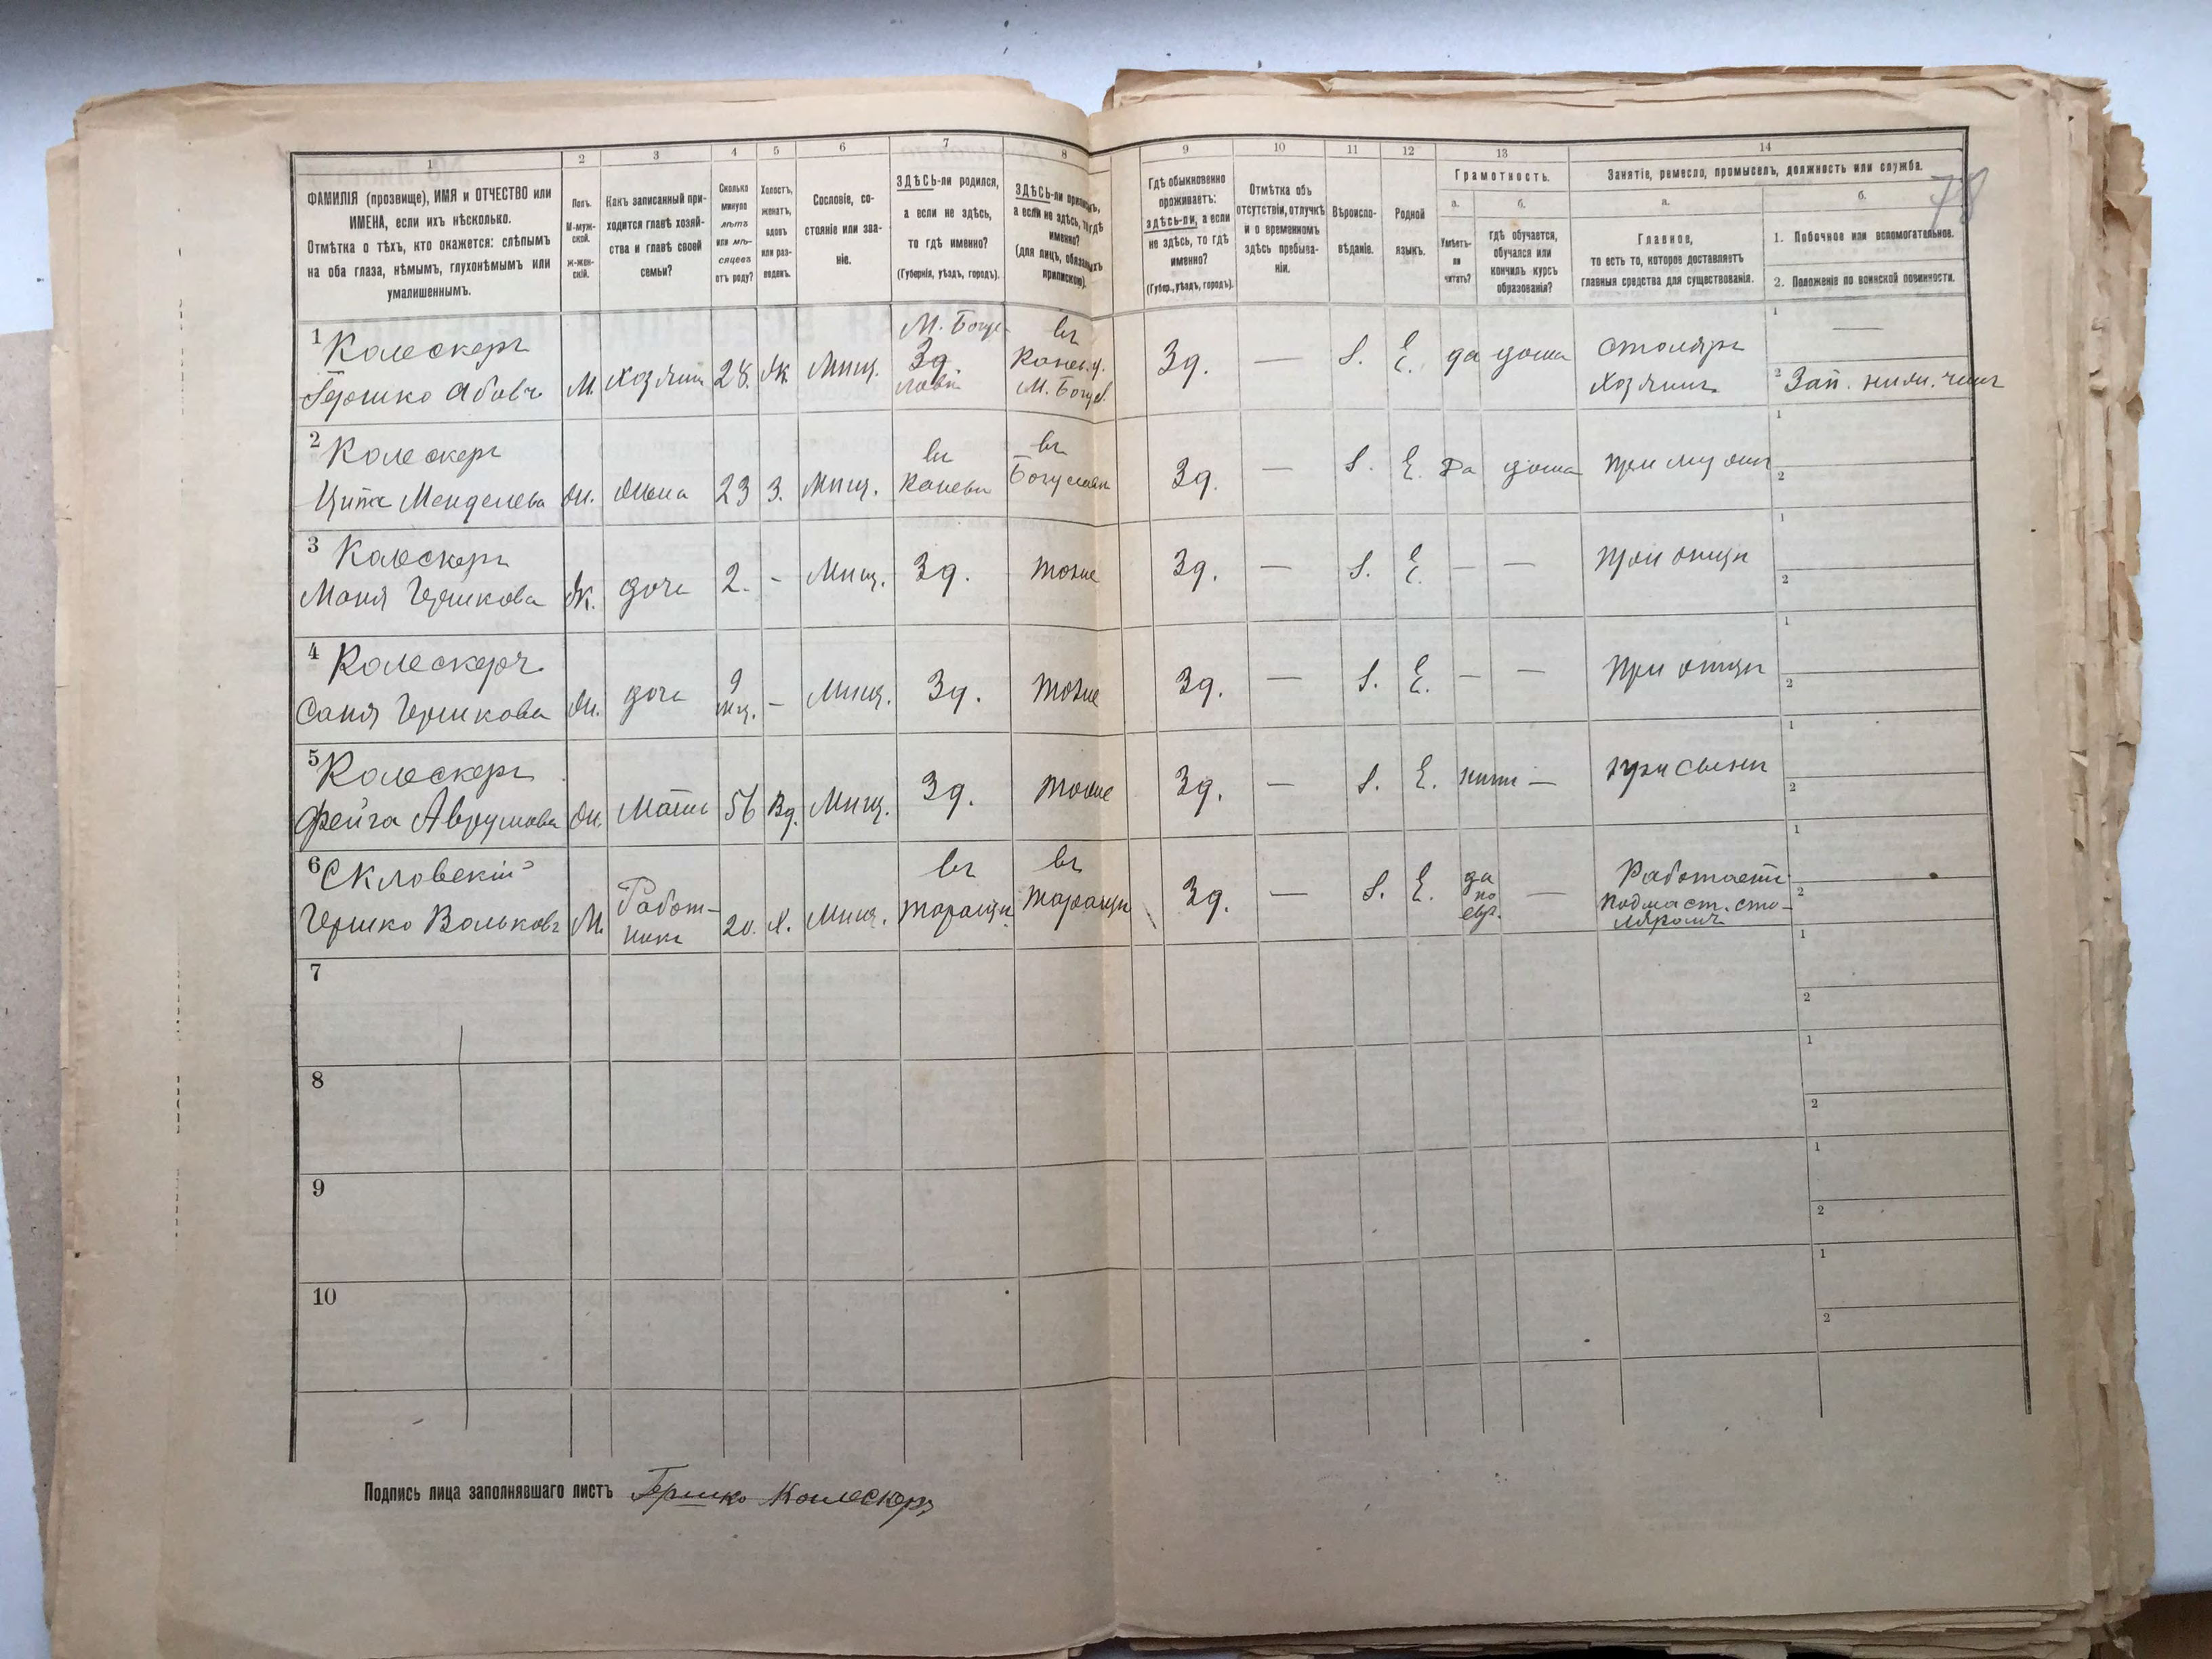 1 2 3 4 5 6 7 8 9 10 11 12 13 14
ФАМИЛІЯ (прозвище), ИМЯ и ОТЧЕСТВО или
ИМЕНА, если ихъ нѣсколько.
Отмѣтка о тѣхъ, кто окажется: слѣпымъ
на оба глаза, нѣмымъ, глухонѣмымъ или
умалишеннымъ.
Полъ.
М-муж-
ской.
Ж-жен-
скій.
Какъ записанный при-
ходится главѣ хозяй-
ства и главѣ своей
семьи?
Сколько
минуло
лѣтъ
или мѣ-
сяцевъ
отъ роду?
Холостъ,
женатъ,
вдовъ
или раз-
веденъ.
Сословіе, со-
стояніе или зва-
ніе.
ЗДѢСЬ-ли родился,
а если не здѣсь,
то гдѣ именно?
(Губернія, уѣздъ, городъ).
ЗДѢСЬ-ли приписанъ,
а если не здѣсь, то гдѣ
именно?
(для лицъ, обязанныхъ
припискою).
Гдѣ обыкновенно
проживаетъ:
здѣсь-ли, а если
не здѣсь, то гдѣ
именно?
(Губер., уѣздъ, городъ).
Отмѣтка объ
отсутствіи, отлучкѣ
и о временномъ
здѣсь пребыва-
ніи.
Вѣроиспо-
вѣданіе.
Родной
языкъ.
Грамотность.
а.
Умѣетъ-
ли
читать?
б.
Гдѣ обучается,
обучался или
кончилъ курсъ
образованія?
Занятіе, ремесло, промыселъ, должность или служба.
78
а.
Главное,
то есть то, которое доставляетъ
главныя средства для существованія.
б.
1. Побочное или вспомогательное.
2. Положеніе по воинской повинности.
1 Колескеръ
Гершко Абовъ М. Хозяинъ 28. Ж. Мѣщ.
М. Богу-
Зд.
въ
Канев. у.
М. Богус.
Зд. — І. Е. да дома
столяръ
Хозяинъ
1 —
2 Зап. нижн. чинъ
2 Колескеръ
Ципа Менделева Ж. Жена 23 З. Мѣщ.
въ
Каневѣ
въ
Богуславѣ
Зд. — І. Е. Да дома при мужѣ
1
2
3 Колескеръ
Маня Гершкова Ж. дочь 2. - Мѣщ. Зд. тоже Зд. — І. Е. — — при отцѣ
1
2
4 Колескеръ
Саня Гершкова Ж. дочь 9 мѣ. - Мѣщ. Зд. тоже Зд. — І. Е. — — При отцѣ
1
2
5 Колескеръ
Фейга Аврумова Ж. Мать 56 Вд. Мѣщ. Зд. тоже Зд. — І. Е. нѣтъ — при сынѣ
1
2
6 Скловскій
Гершко Вольковъ М. Работ-
никъ
20. Х. Мѣщ.
въ
Таращѣ
въ
Таращѣ
Зд. — І. Е.
да
по
евр.
—
Работаетъ
подмаст. сто-
ляромъ
1
2
7
1
2
8
1
2
9
1
2
10
1
2
Подпись лица заполнявшаго листъ Гершко Колескеръ